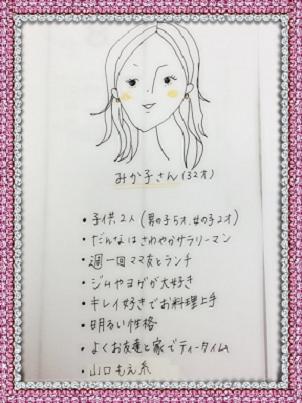 みか子さん(32才)
・子供2人(男の子5才、女の子2才)
・だんなはさわやかサラリーマン
・週一回ママ友とランチ
・ジムやヨガが大好き
・キレイ好きでお料理上手
・明るい性格
・よくお友達と家でティータイム
・山口もえ系